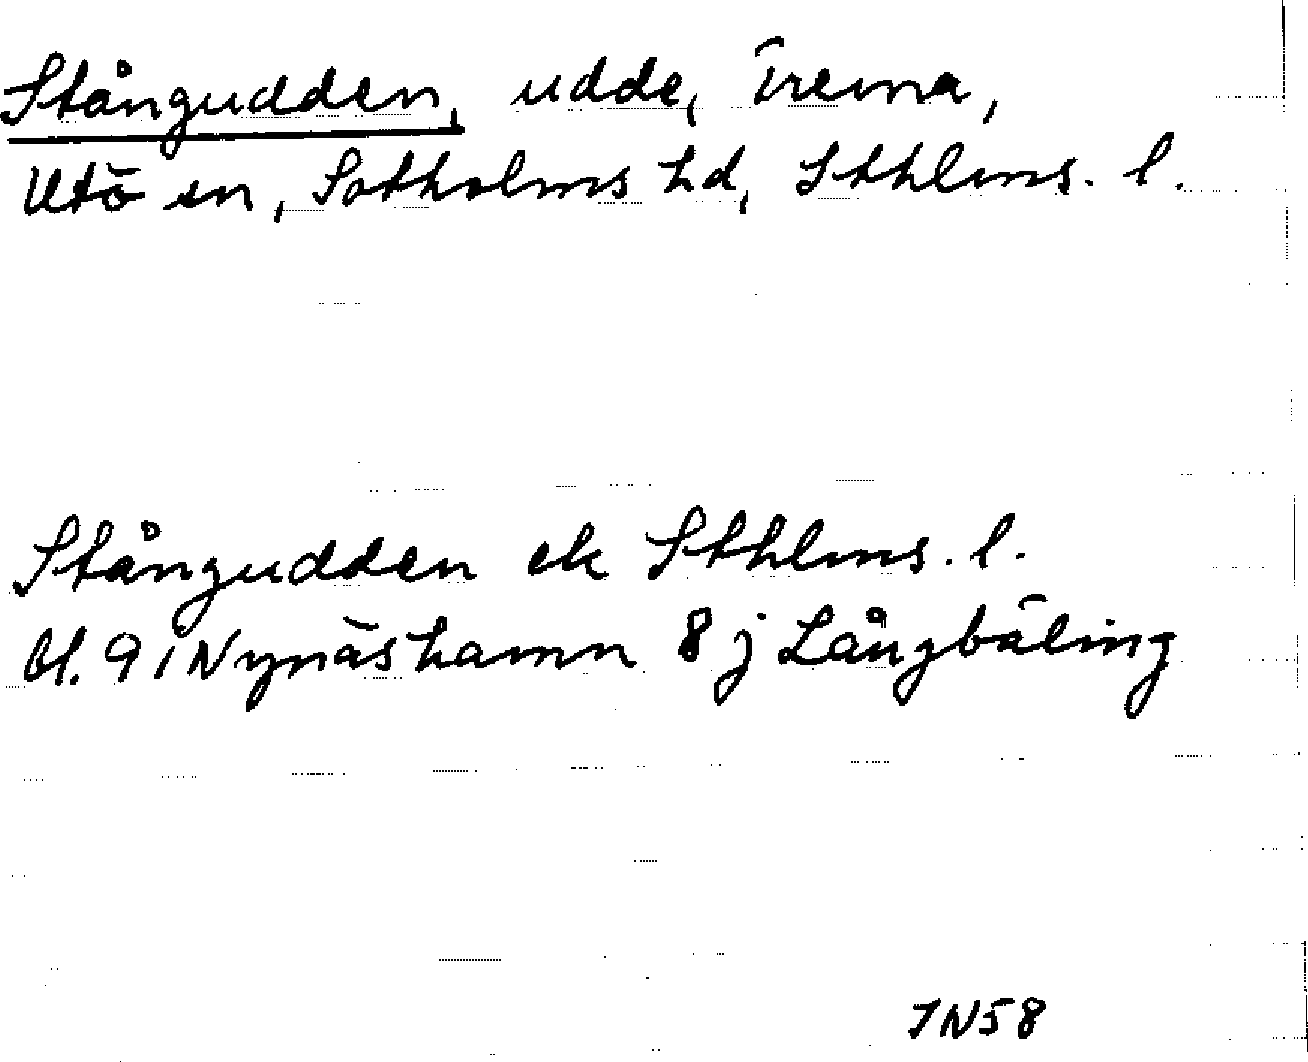 Stångudden, udde, Trema,
Utö sn, Sotholms hd, Sthlms. l.
Stångudden ek Sthlms. l.
bl. 9 i Nynäshamn 8 j Långbäling
JN58